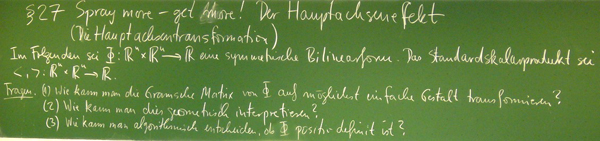 §27 Spray more – get more! Der Hauptachseneffekt
(Die Hauptachsentransformation)
Im Folgenden sei Φ: ℝⁿ×ℝⁿ → ℝ eine symmetrische Bilinearform. Das Standardskalarprodukt sei
<,>: ℝⁿ×ℝⁿ → ℝ.
Fragen. (1) Wie kann man die Gramsche Matrix von Φ auf möglichst einfache Gestalt transformieren?
(2) Wie kann man dies geometrisch interpretieren?
(3) Wie kann man algorithmisch entscheiden, ob Φ positiv definit ist?